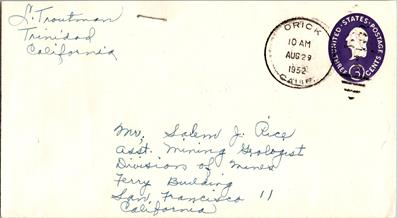 L. Troutman
Trinidad
California
ORICK
10 AM
AUG 29
1952
CALIF.
UNITED STATES POSTAGE
THREE 3 CENTS
Mr. Salem J. Rice
Asst. Mining Geologist
Divisions of Mines
Ferry Building
San Francisco 11
California